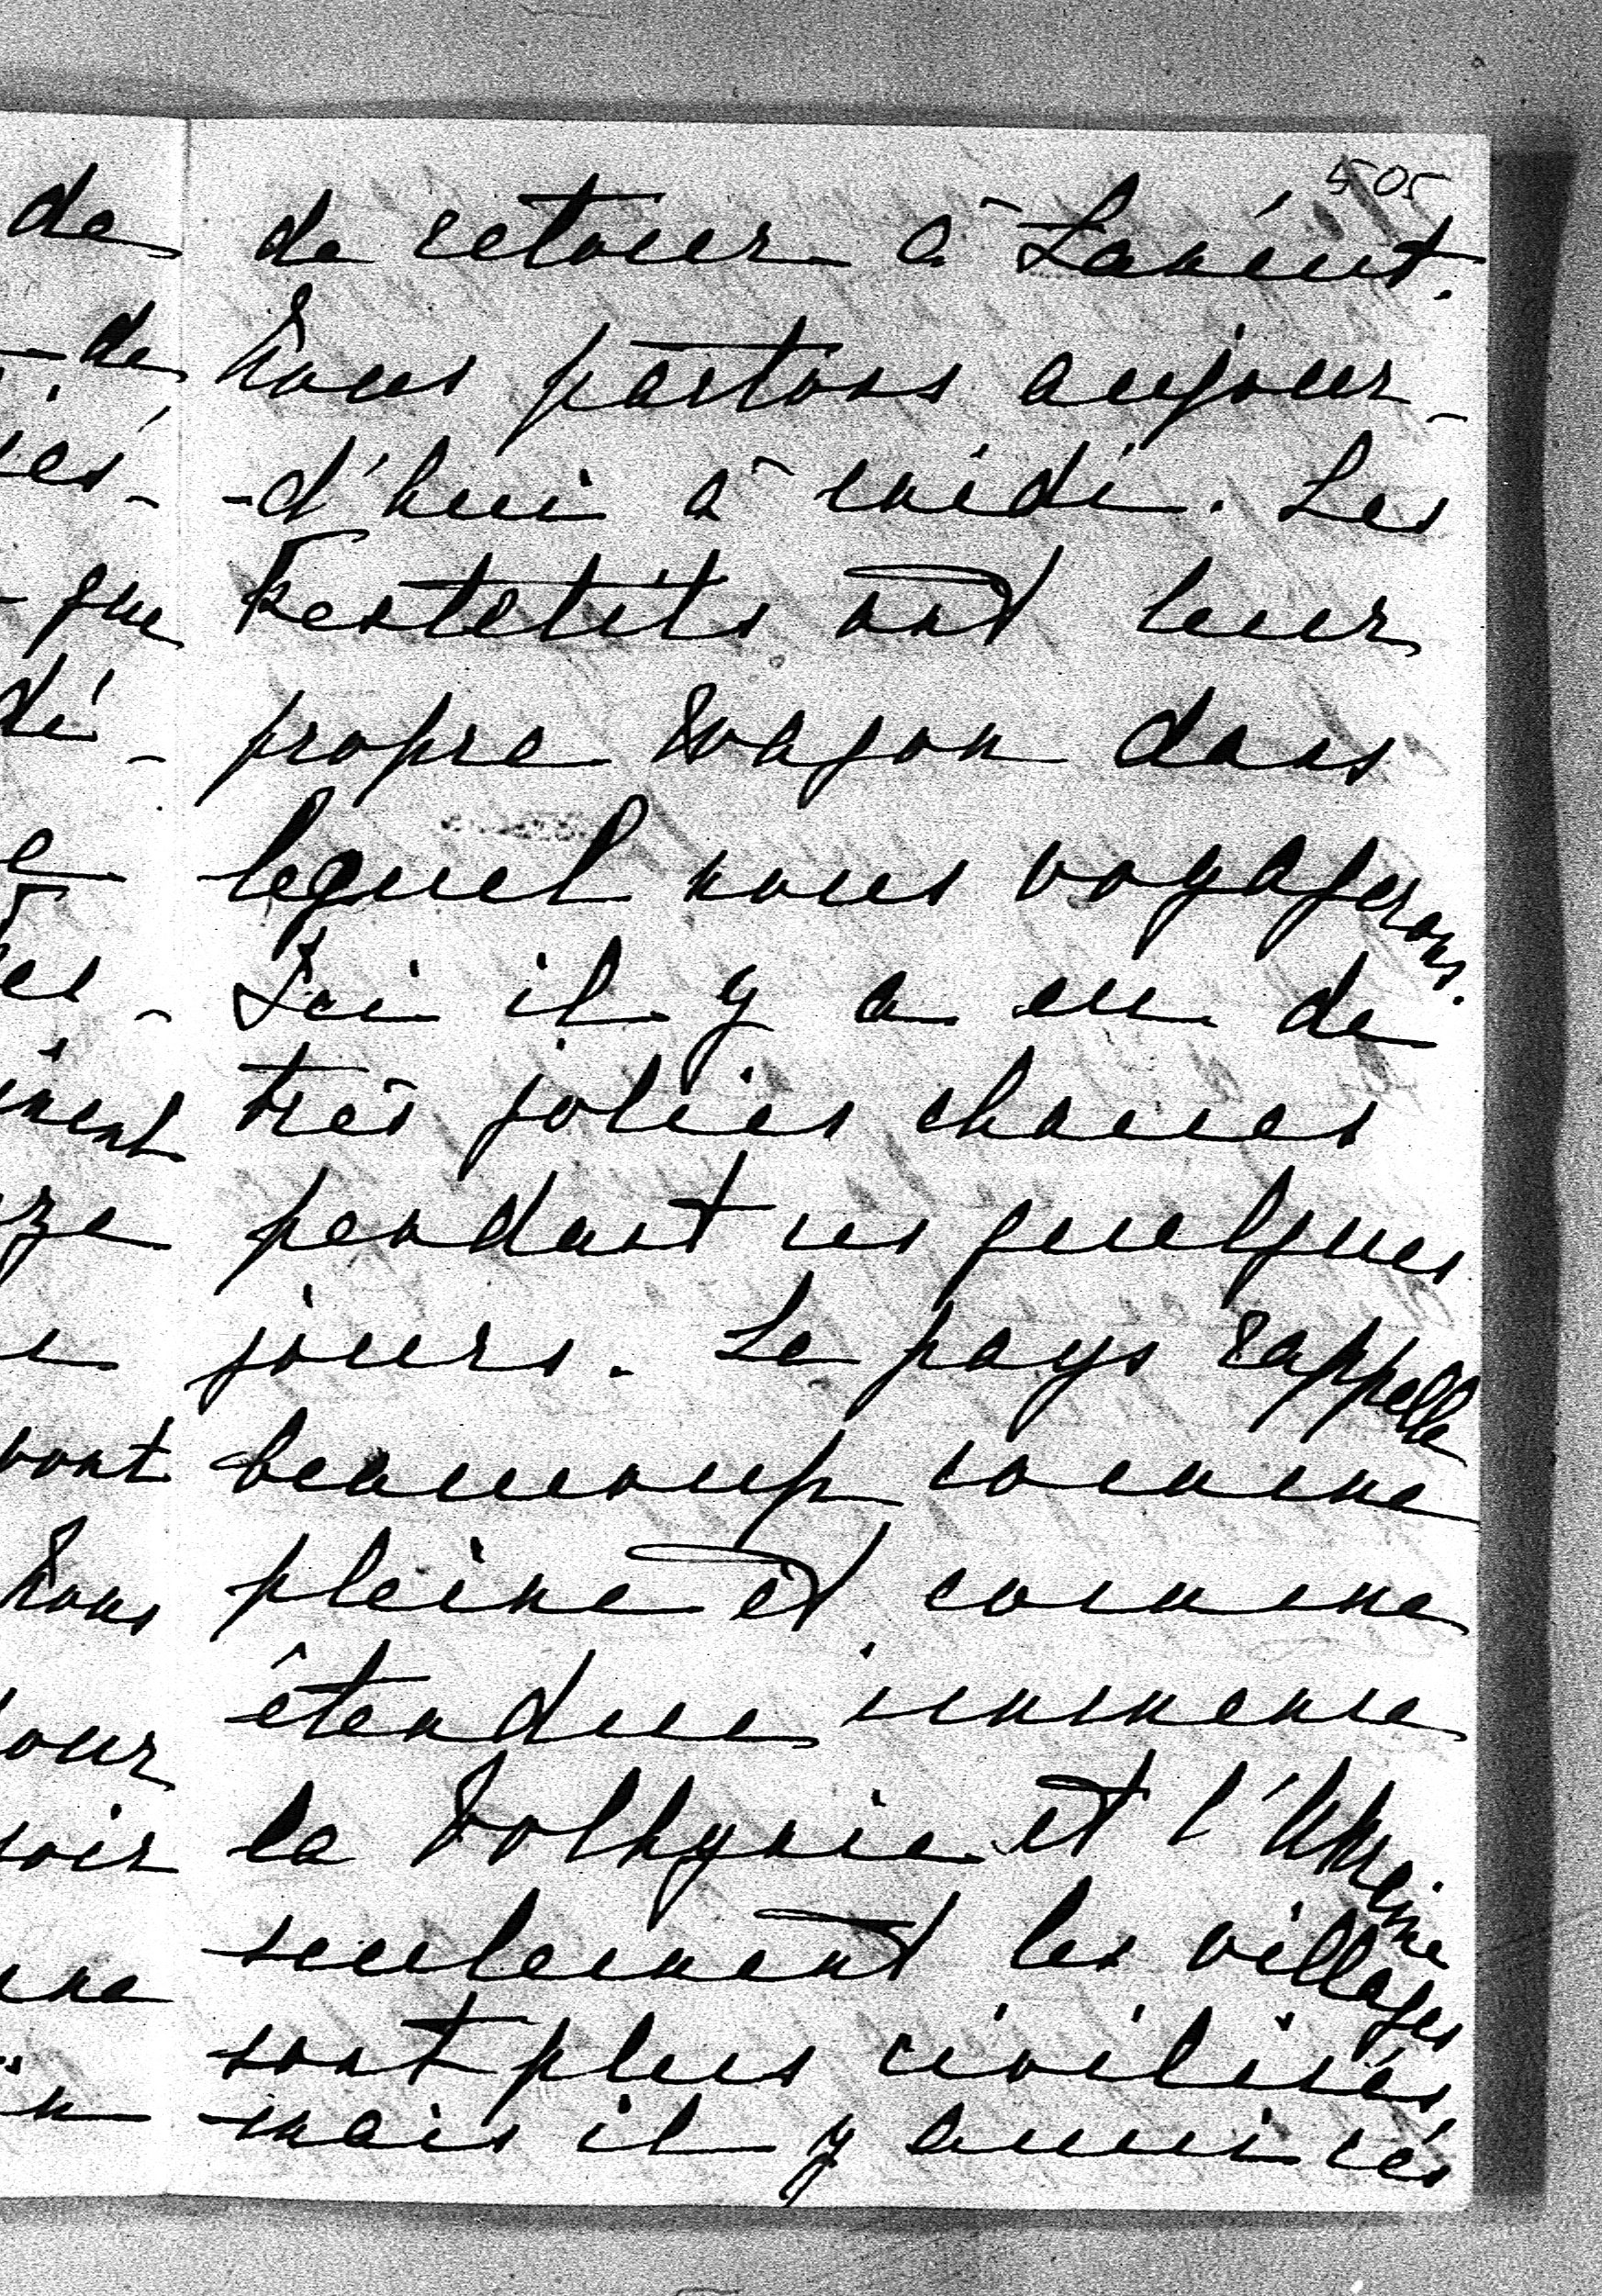 de
de
que
dé-
vont
Nous
soir
505
de retour à Lancut.
Nous partons aujour-
-d'hui à midi. Les
Festetits ont leur
propre Wagon dans
lequel nous voyagerons.
Ici il y a eu de
très jolies chasses
pendant ces quelques
jours. Le pays rappelle
beaucoup comme
pleine et comme
êtendue immense
la Volhynie et l'Ukraine
seulement les villages
sont plus civilisés
mais il y aussi cés